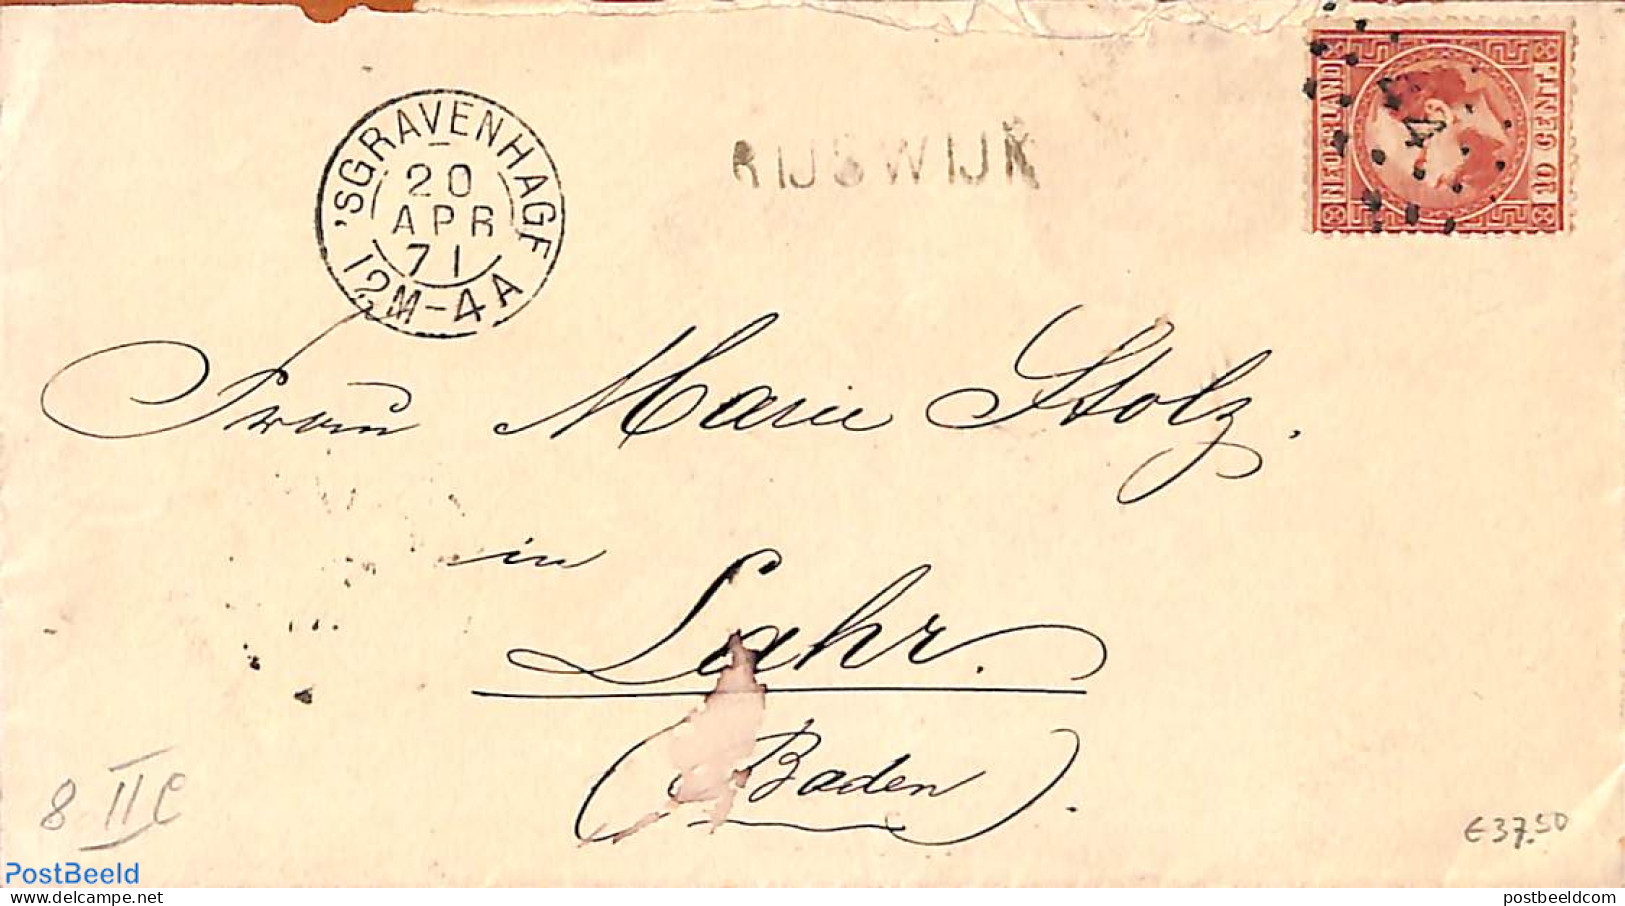 'SGRAVENHAGE
20
APR
71
12M-4A
RIJSWIJK
NEDERLAND
10 CENT.
Frau Marie Stolz.
in
Lahr.
(Baden).
8 II C
€37.50
PostBeeld
postbeeldcom